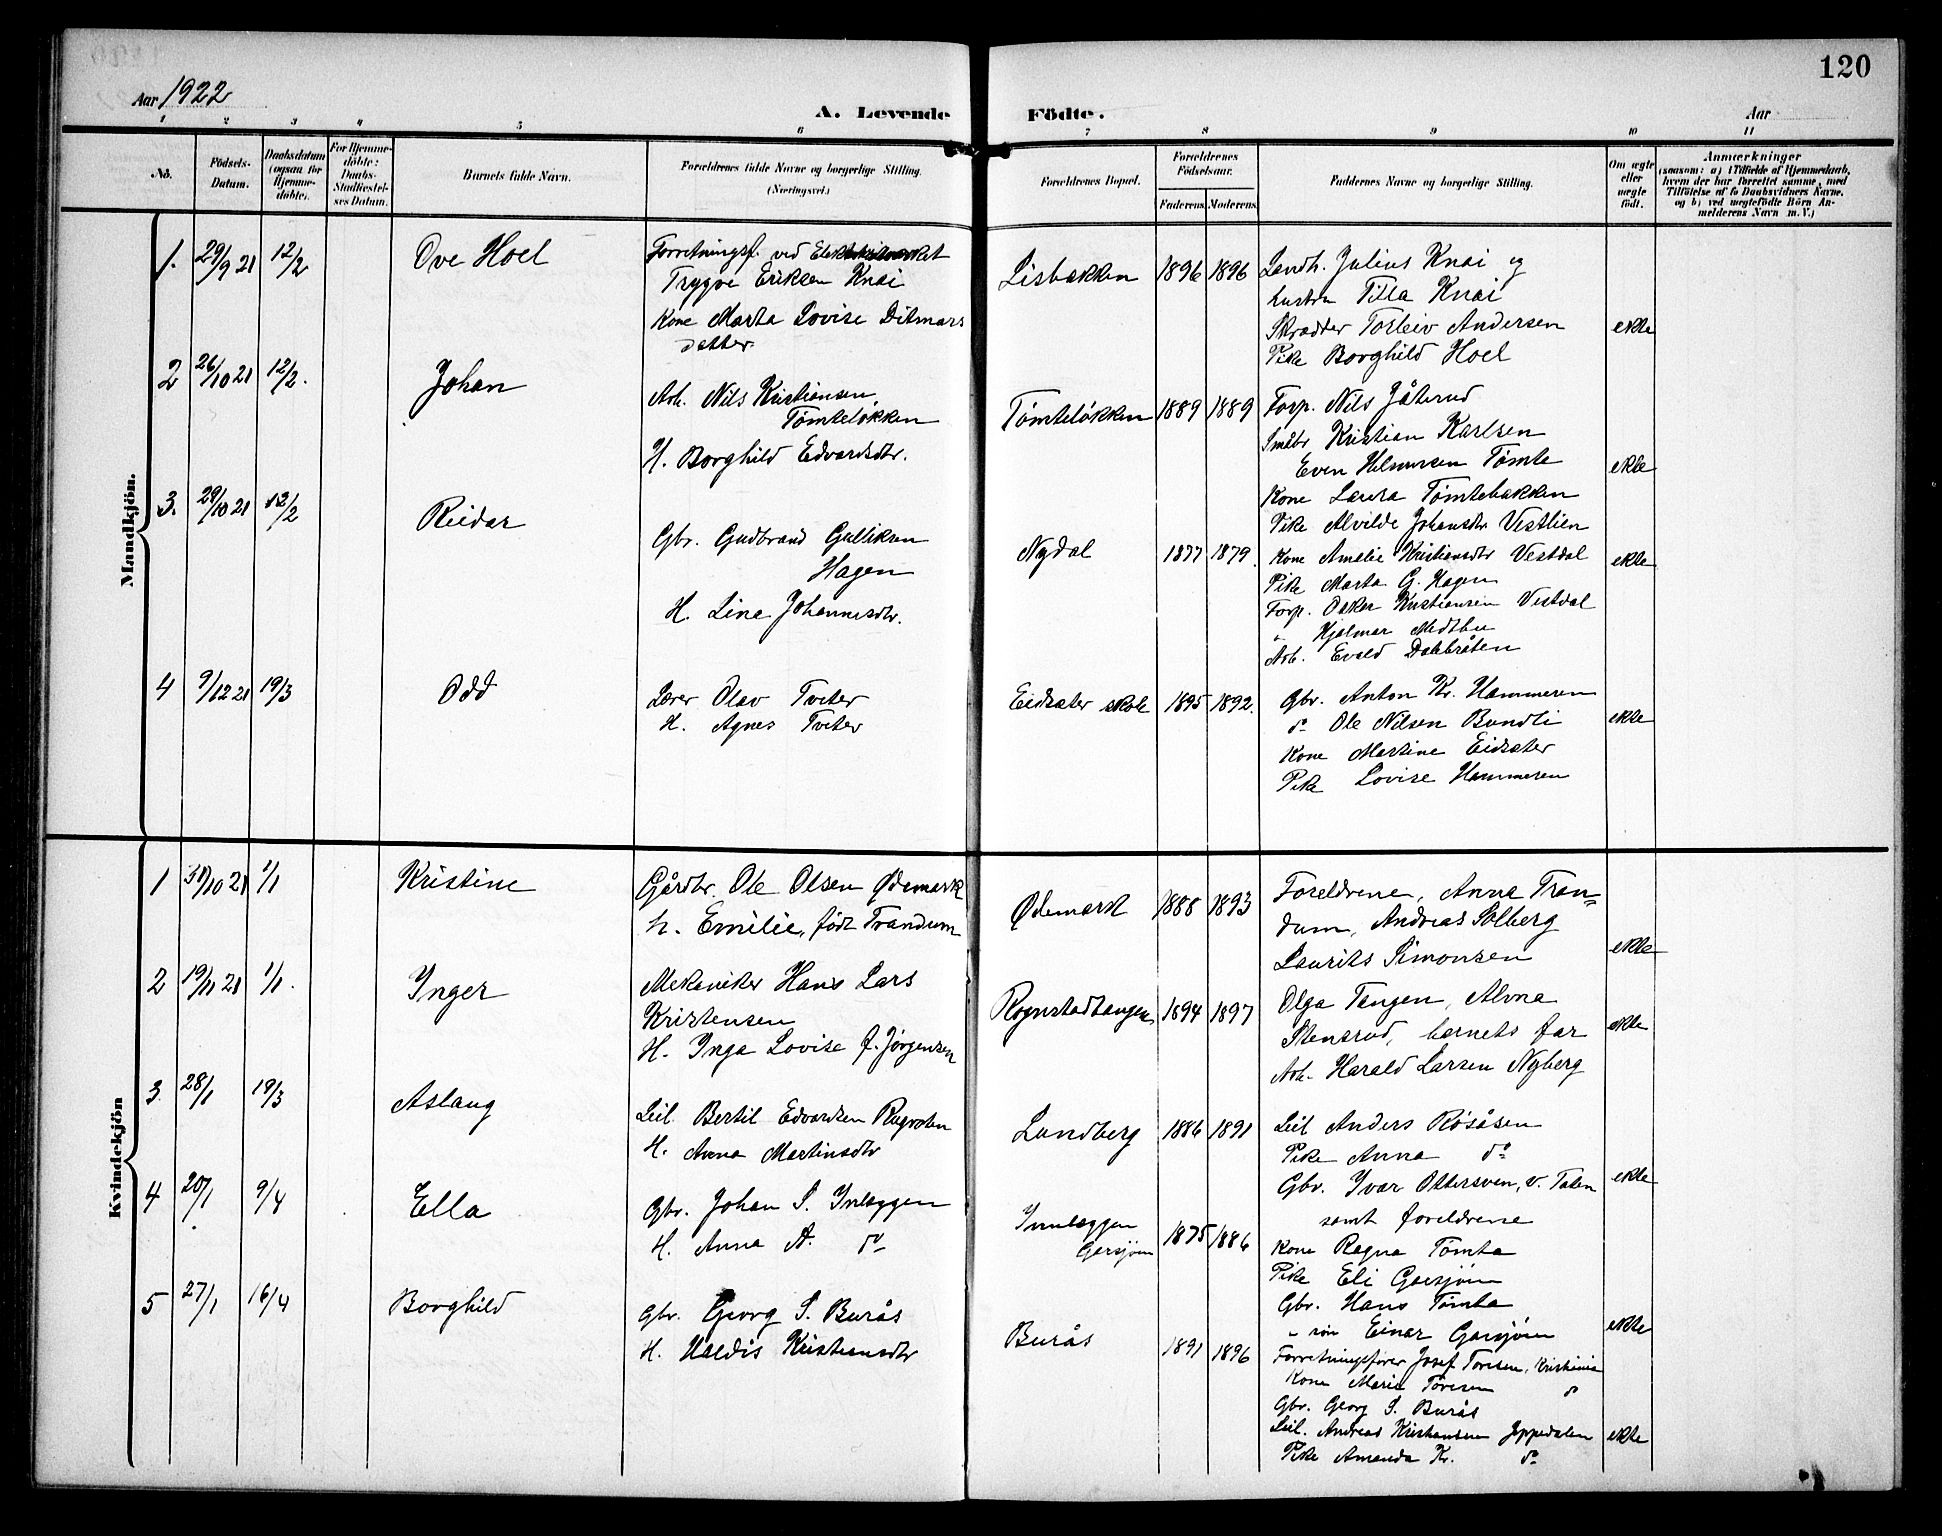 120
Aar 1922
A. Levende Födte.
Aar
1 2 3 4 5 6 7 8 9 10 11
No.
Födsels-Datum.
Daabsdatum (ogsaa for Hjemme-döbte).
For Hjemme-döbte: Daabs-Stadfæstel-ses Datum.
Barnets fulde Navn.
Forældrenes fulde Navne og borgerlige Stilling.
(Næringsvei.)
Forældrenes Bopæl.
Forældrenes Födselsaar.
Faderens Moderens
Faddernes Navne og borgerlige Stilling.
Om ægte eller uægte födt.
Anmærkninger
(saasom: a) i Tilfælde af Hjemmedaab,
hvem der har forrettet samme, med
Tilföielse af to Daabsvidners Navne,
og b) ved uægtefödte Börn An-
melderens Navn m. V.)
Mandkjön.
1. 29/9 21 12/2 Ove Hoel
Forretningsf. ved Elektricitetsverket
Trygve Eriksen Knai
Kone Marta Lovise Ditmars
datter
Lisbakken 1896 1896
Landh. Julius Knai og
hustru Tilla Knai
Skrædder Torleiv Andersen ekte
Pike Borghild Hoel
2 26/10 21 12/2. Johan
Arb. Nils Kristiansen,
Tømteløkken
H. Borghild Edvardsdtr.
Tømteløkken 1889 1889
Forp. Nils Jåterud
Småbr Kristian Karlsen
Even Helmersen Tømte ekte
Kone Laura Tømtebakken
Pike Alvilde Johansdtr Vestlien
3. 29/10 21 12/2 Reidar
Gbr. Gudbrand Gulliksen
Hagen
H. Line Johannesdtr.
Nydal 1877 1879.
Kone Amalie Kristiansdtr Vestdal ekte
Pike Marta G. Hagen
Forp. Oskar Kristiansen Vestdal
" Hjalmar Medtbu
Arb. Evald Dalbråten
4 9/12 21 19/3 Odd
Lærer Olav Tveter
H. Agnes Tveter
Eidsæter skole 1895 1892.
Gbr. Anton Kr. Hammeren
do Ole Nilsen Bundli ekte
Kone Martine Eidsæter
Pike Lovise Hammeren
Kvindekjön
1 31/10 21 1/1 Kristine
Gårdbr. Ole Olsen Ødemark
h. Emilie, født Trandum
Ødemark 1888 1893
Foreldrene, Anna Tran=
dum, Andreas Solberg
Laurits Simonsen ekte
2 19/11 21 1/1. Inger
Mekaniker Hans Lars
Kristensen
H. Inga Lovise f. Jørgensen
Rognstadtangen 1894 1897
Olga Tangen, Alvna
Stensrud, barnets far ekte
Arb. Harald Larsen Nyberg
3. 28/1 19/3 Aslaug
Leil. Bertil Edvardsen
H. Anna Martinsdtr
Lundberg 1886 1891
Leil Anders Røsåsen
Pike Anna do
Gbr. Ivar Ottersven, v. Taten ekte
samt foreldrene
4 20/1 9/4 Ella
Gbr. Johan S. Inlæggen
H. Anna A. do
Innlæggen
Garsjøen 1875 1886
Kone Ragna Tømte
Pike Eli Garsjøen
Gbr. Hans Tømte
" søn Einar Garsjøen ekte
5 27/1 16/4 Borghild
Gbr. Georg S. Burås
H. Valdis Kristiansdtr
Burås 1891 1896
Forretningsfører Josef Toresen, Kristiania
Kone Marie Toresen do
Gbr. Georg S. Burås
Leil. Andreas Kristiansen Jeppedalen ekte
Pike Amanda Kr. do